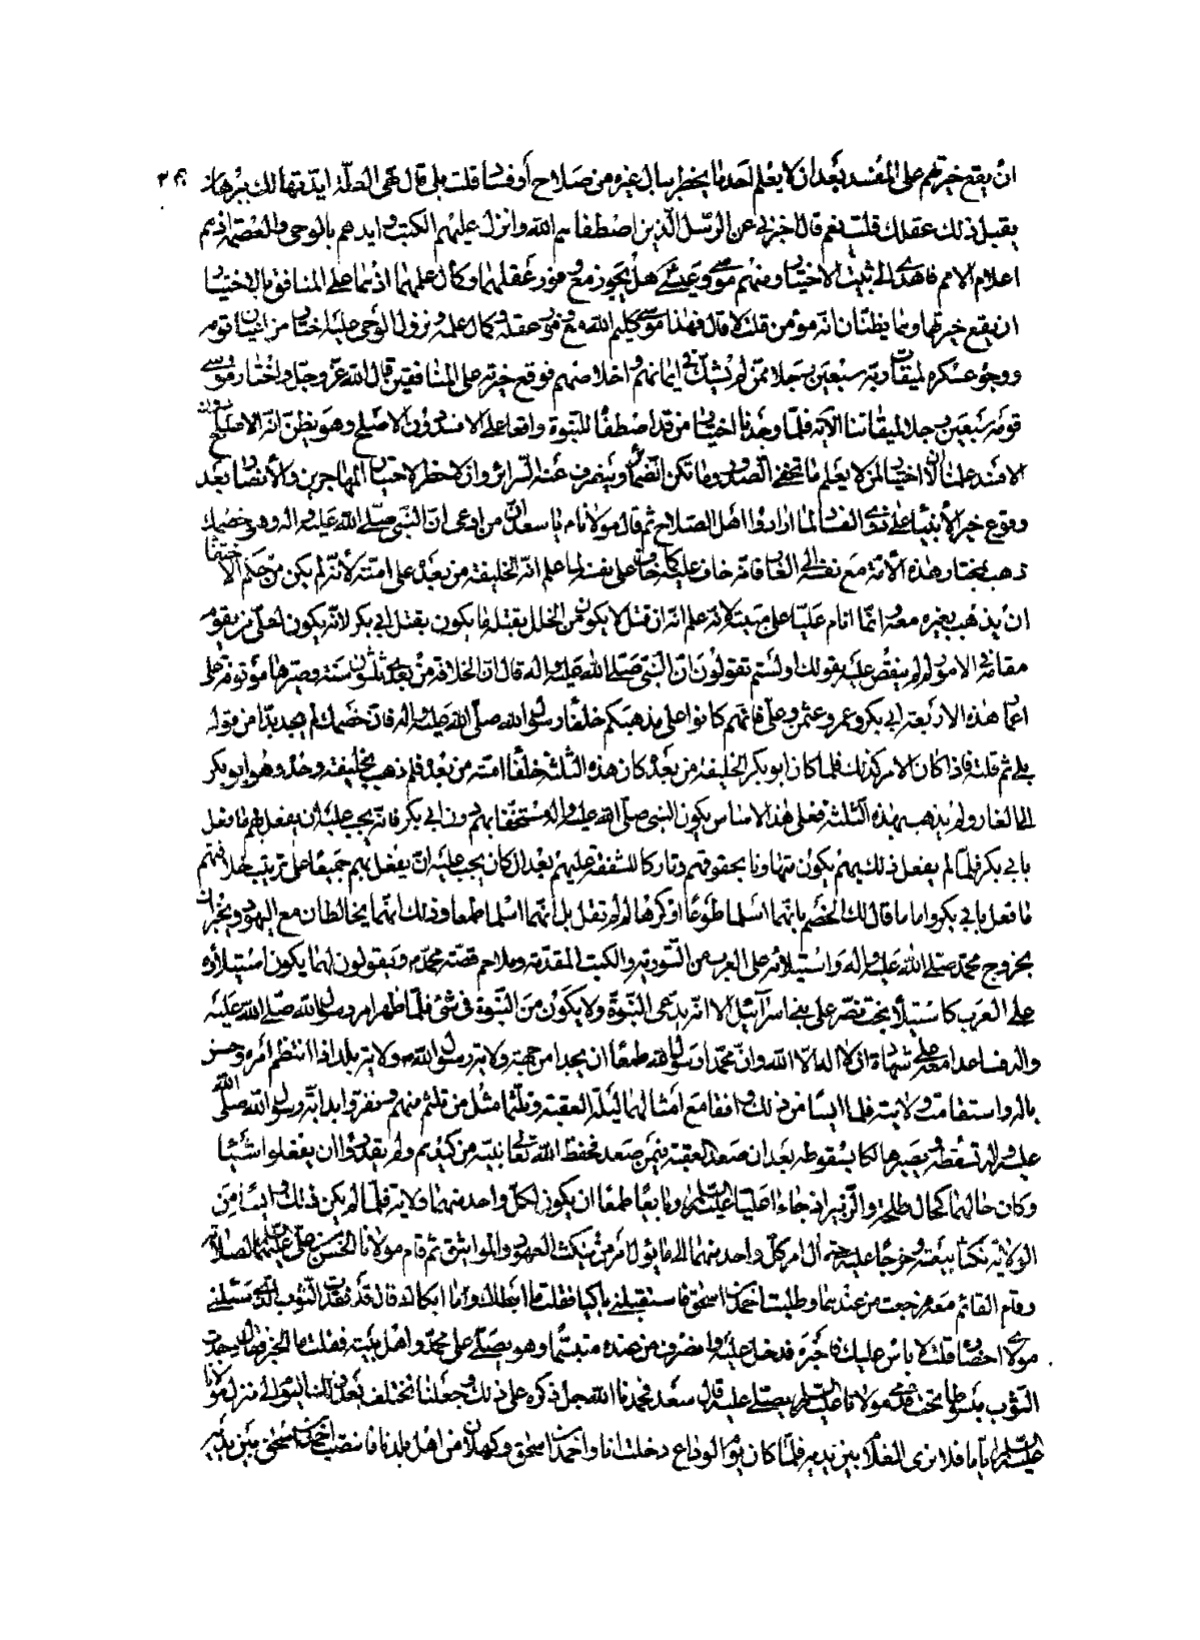 ان يقع خيرتهم على المفسد بعد ان لا يعلم احد ما يخطر ببال غيره من صلاح أو فساد قلت بلى قال فهى العلّة ايّدتها لك ببرهان
يقبل ذلك عقلك قلت نعم قال اخبرنى عن الرّسل الّذين اصطفاهم اللّه وانزل عليهم الكتب وايدهم بالوحى والعصمة اذ هم
اعلام الامم فاهدى الى ثبت الاختيار ومنهم موسى وعيسى هل يجوز مع وفور عقلهما وكمال علمهما اذ هما على المنافق بالاختيار
ان يقع خيرتهما وهما يظنّان انّه مؤمن قلت لا قال فهذا موسى كليم اللّه مع وفور عقله وكمال علمه ونزول الوحى عليه اختار من اعيان قومه
ووجوه عسكره لميقات ربّه سبعين رجلا ممّن لم يشك فى ايمانهم واخلاصهم فوقع خيرته على المنافقين قال اللّه عزّ وجلّ واختار موسى
قومه سبعين رجلا لميقاتنا الآية فلمّا وجدنا اختيار من قد اصطفاه للنبوّة واقعا على الافسد دون الاصلح وهو يظنّ انّه الاصلح دون
الافسد علمنا ان لا اختيار لمن لا يعلم ما تخفى الصدور وما تكن الضمائر ويتصرف عنه السرائر وان لا خطر لاختيار المهاجرين والأنصار بعد
وقوع خيرة الأنبياء على ذوى الفساد لما ارادوا اهل الصلاح ثم قال مولانا م يا سعد ان من ادعى انّ النّبى صلّى اللّه عليه واله وهو خصمك
ذهب بمختار هذه الأمّة مع نفسه الى الغار فانّه خاف عليه كما خاف على نفسه لما علم انّه الخليفة من بعده على امّته لأنّه لم يكن من حكم الاختفاء
ان يذهب بغيره معه وانّما انام عليّا على مبيته لانّه علم انّه ان قتل لا يكون من الخلل بقتله ما يكون بقتل ابى بكر لانّه يكون لعلىّ من يقوم
مقامه فى الامور لم لم ينقض عليه بقولك اولستم تقولون انّ النّبى صلّى اللّه عليه واله قال انّ الخلافة من بعدى ثلثون سنة وصيّرها موقوفة على
اعمار هذه الاربعة ابى بكر وعمر وعثمن وعلى فانّهم كانوا على مذهبكم خلفاء رسول اللّه صلّى اللّه عليه واله فانّ خصمك لم يجد بدّا من قوله
بلى ثم قلت فاذا كان الامر كذلك فلما كان ابو بكر الخليفة من بعده كان هذه الثلثة خلفاء امته من بعده فلم ذهب بخليفة وحده وهو ابو بكر
الى الغار ولم يذهب بهذه الثلثة فعلى هذا الاساس يكون النبى صلّى اللّه عليه واله مستخفّا بهم دون ابى بكر فانّه يجب عليه ان يفعل بهم ما فعل
بابى بكر فلمّا لم يفعل ذلك بهم يكون متهاونا بحقوقهم وتاركا للشفقة عليهم بعد ان كان يجب عليه ان يفعل بهم جميعا على ترتيب خلافتهم
ما فعل بابى بكر واما ما قال لك الخصم بانّهما اسلما طوعا أو كرها لم لم تقل بل انّهما اسلما طمعا وذلك انّهما يخالطان مع اليهود ويخبران
بخروج محمّد صلّى اللّه عليه واله واستيلائه على العرب من التّورية والكتب المقدّمة وملاحم قصّة محمّد م ويقولون لهما يكون استيلاؤه
على العرب كاستيلاء بخت نصّر على بنى اسرآئيل الا انّه يدّعى النّبوة ولا يكون من النّبوة فى شئ فلمّا ظهر امر رسول اللّه صلّى اللّه عليه
واله فساعدا معه على شهادة ان لا اله الّا اللّه وانّ محمّدا رسول اللّه طمعا ان يجدا من جهة ولاية رسول اللّه م ولاية بلد اذا انتظم امره وحسن
باله واستقامت ولايته فلما ايسا من ذلك وافقا مع امثالهما ليلة العقبة وتلثّما مثل من تلثم منهم ونفروا بدابّة رسول اللّه صلّى اللّه
عليه واله لتسقطه ويصيرها لكا بسقوطه بعد ان صعد العقبة فيمن صعد فحفظ اللّه تعالى نبيّه من كيدهم ولم يقدروا ان يفعلوا شيئا
وكان حالهما كحال طلحة والزّبير اذ جاءا عليّا عليه السلم وبايعا طمعا ان يكون لكل واحد منهما ولاية فلمّا لم يكن ذلك وايسا من
الولاية نكثا بيعته وخرجا عليه حتى آل امر كلّ واحد منهما الى ما يؤل أمر من ينكث العهود والمواثيق ثم قام مولانا الحسن بن على عليهما الصلاة
وقام القائم معه فرجعت من عندهما وطلبت احمد بن اسحق فاستقبلنى باكيا فقلت ما ابطأك وما ابكاك قال قد فقدت الثوب الّذى سئلنى
مولاى احضاره قلت لا باس عليك فاخبره فدخل عليه وانصرف من عنده متبسّما وهو يصلّى على محمّد واهل بيته فقلت ما الخبر فقال وجدت
الثوب مبسوطا تحت قدمى مولانا عليه السلم يصلّى عليه قال سعد فحمدنا اللّه جل ذكره على ذلك وجعلنا نختلف بعد ذلك اليوم الى منزل مولانا
عليه السلم أيّاما فلا نرى الغلام بين يديه فلمّا كان يوم الوداع دخلت انا واحمد بن اسحق وكهلان من اهل بلدنا فانتصب احمد بن اسحق بين يديه